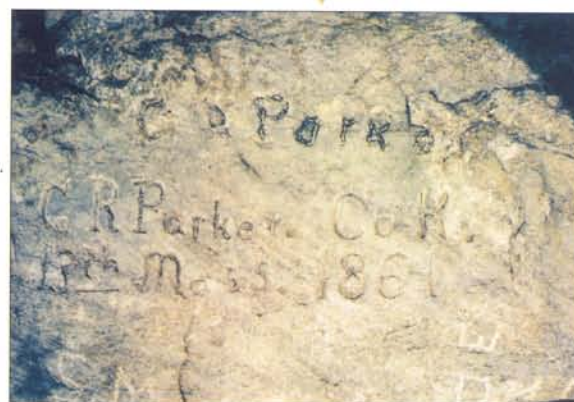 C R Parke
C R Parker. Co. K.
13th Mass. 1861